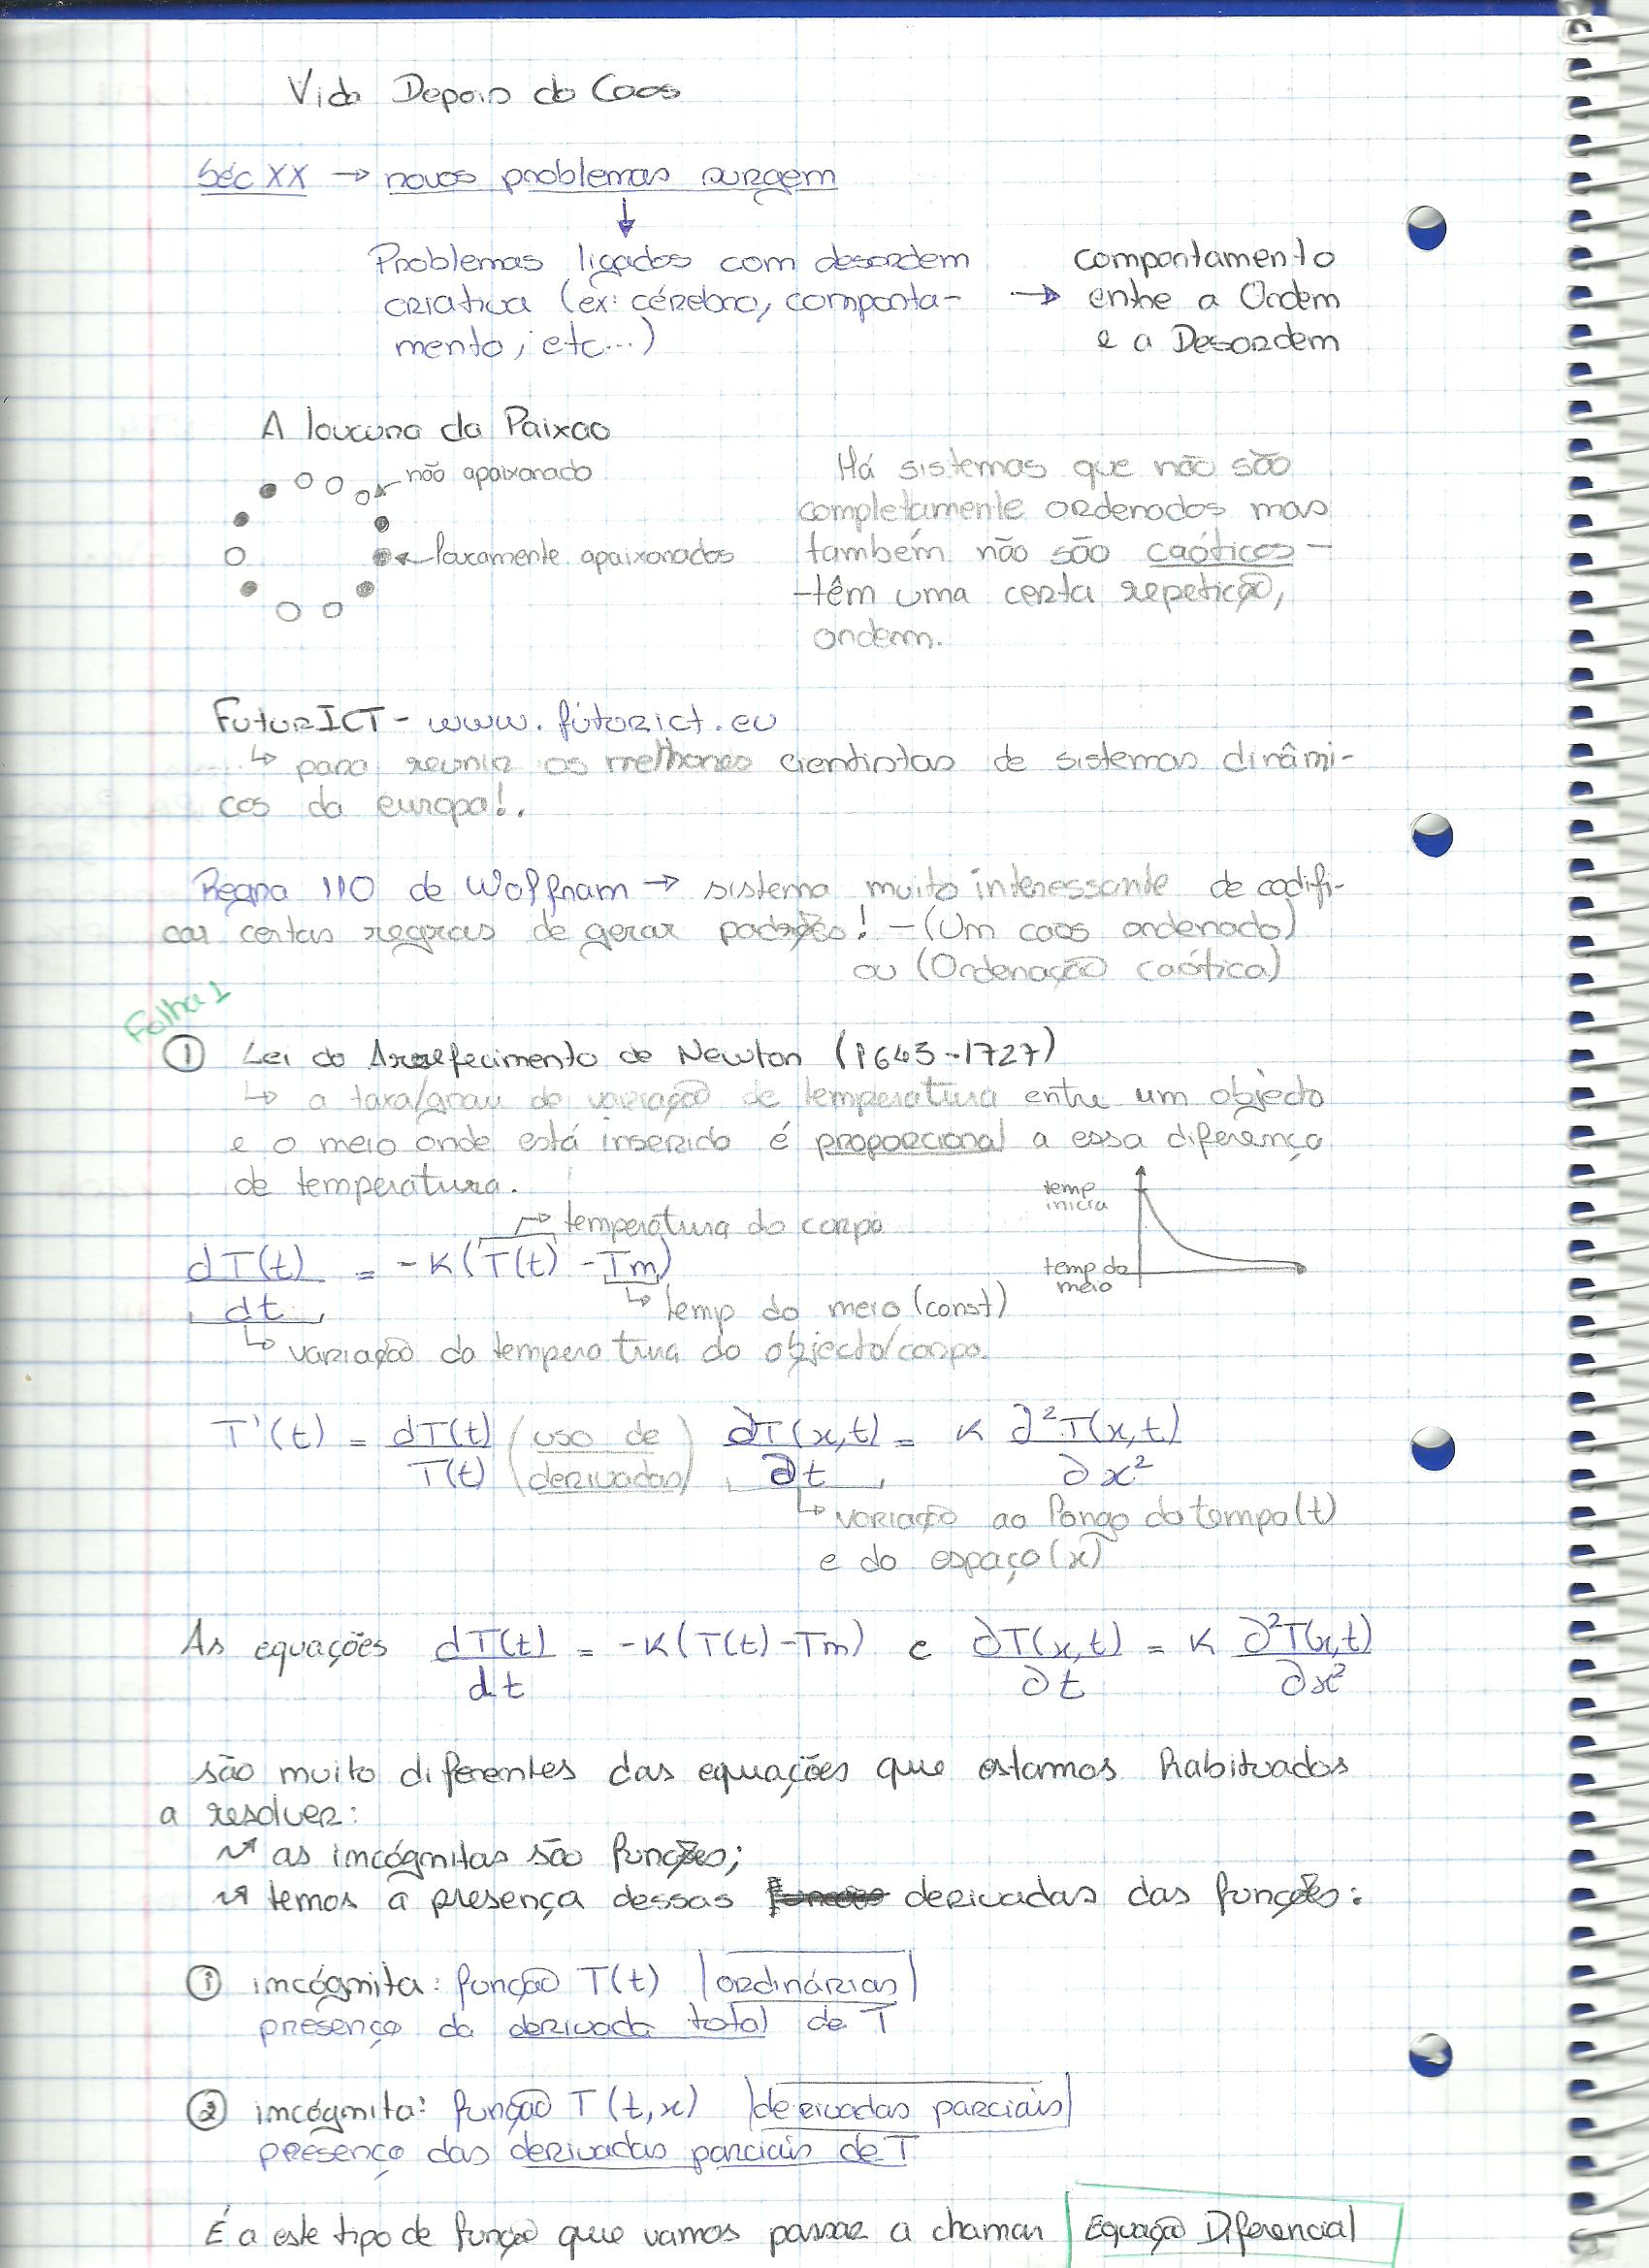 Vida Depois do Caos
Séc XX → novos problemas surgem
↓
Problemas ligados com desordem
criativa (ex: cérebro, comporta-
mento, etc...)
→ comportamento
entre a Ordem
e a Desordem
A loucura da Paixao
não apaixonado
loucamente apaixonados
Há sistemas que não são
completamente ordenados mas
também não são caóticos -
-têm uma certa repetição,
ordem.
FuturICT - www.futurict.eu
↳ para reunir os melhores cientistas de sistemas dinâmi-
cos da europa!.
Regra 110 de Wolfram → sistema muito interessante de codifi-
car certas regras de gerar padrões! - (Um caos ordenado)
ou (Ordenação caótica)
Folha 1
① Lei do Arrefecimento de Newton (1643-1727)
↳ a taxa/grau de variação de temperatura entre um objecto
e o meio onde está inserido é proporcional a essa diferença
de temperatura.
temp
inicia
temp do
meio
temperatura do corpo
dT(t)/dt = -K(T(t) - Tm)
↳ temp do meio (const)
↳ variação da temperatura do objecto/corpo.
T'(t) = dT(t)/T(t) (uso de derivadas) ∂T(x,t)/∂t = K ∂²T(x,t)/∂x²
↳ variação ao longo do tempo (t)
e do espaço (x)
As equações dT(t)/dt = -K(T(t)-Tm) e ∂T(x,t)/∂t = K ∂²T(x,t)/∂x²
são muito diferentes das equações que estamos habituados
a resolver:
↝ as incógnitas são funções;
↝ temos a presença dessas derivadas das funções:
① incógnita: função T(t) |ordinárias|
presença da derivada total de T
② incógnita: função T(t,x) |derivadas parciais|
presença das derivadas parciais de T
É a este tipo de função que vamos passar a chamar Equação Diferencial